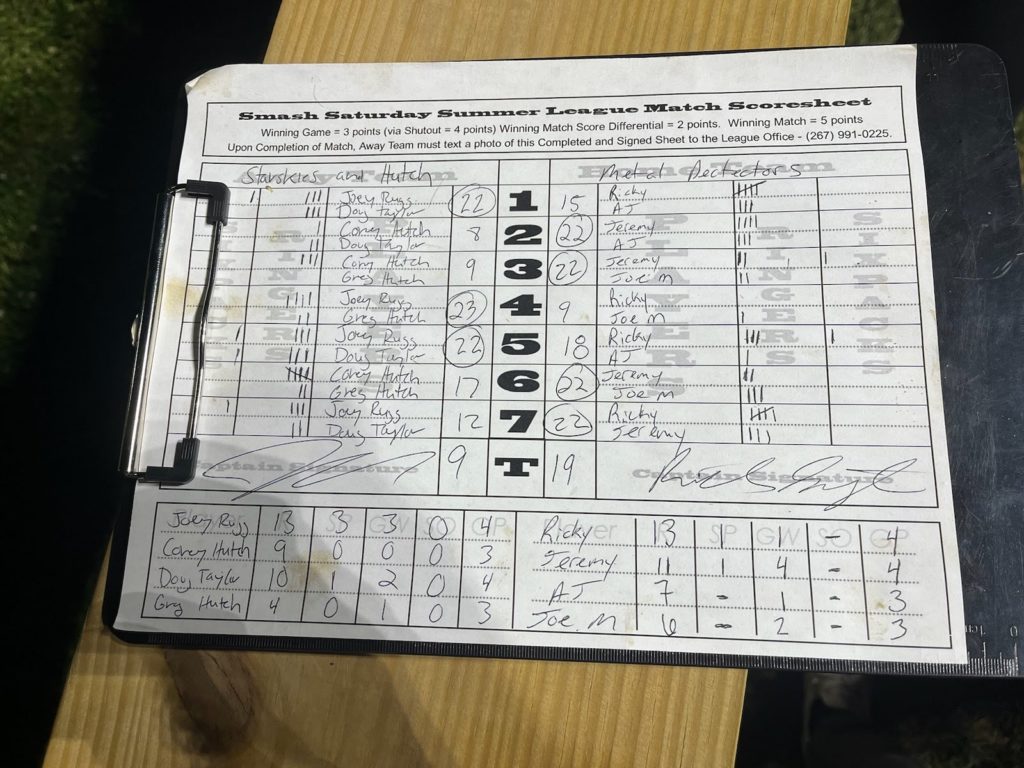 Smash Saturday Summer League Match Scoresheet
Winning Game = 3 points (via Shutout = 4 points) Winning Match Score Differential = 2 points. Winning Match = 5 points
Upon Completion of Match, Away Team must text a photo of this Completed and Signed Sheet to the League Office - (267) 991-0225.
Starskies and Hutch Metal Detectors
Joey Rugg 22 1 15 Ricky
Doug Taylor AJ
Corey Hutch 8 2 22 Jeremy
Doug Taylor AJ
Cory Hutch 9 3 22 Jeremy
Greg Hutch Joe M
Joey Rugg 23 4 9 Ricky
Greg Hutch Joe M
Joey Rugg 22 5 18 Ricky
Doug Taylor AJ
Corey Hutch 17 6 22 Jeremy
Greg Hutch Joe M
Joey Rugg 12 7 22 Ricky
Doug Taylor Jeremy
Captain Signature 9 T 19 Captain Signature
Joey Rugg 13 3 3 0 4 Ricky 13 1 1 - 4
Corey Hutch 9 0 0 0 3 Jeremy 11 1 4 - 4
Doug Taylor 10 1 2 0 4 AJ 7 - 1 - 3
Greg Hutch 4 0 1 0 3 Joe M 6 - 2 - 3